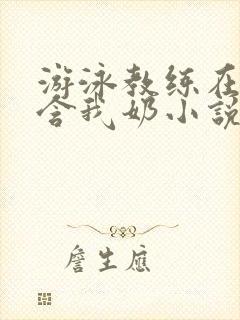 游泳教练在
含我奶小說
詹生應